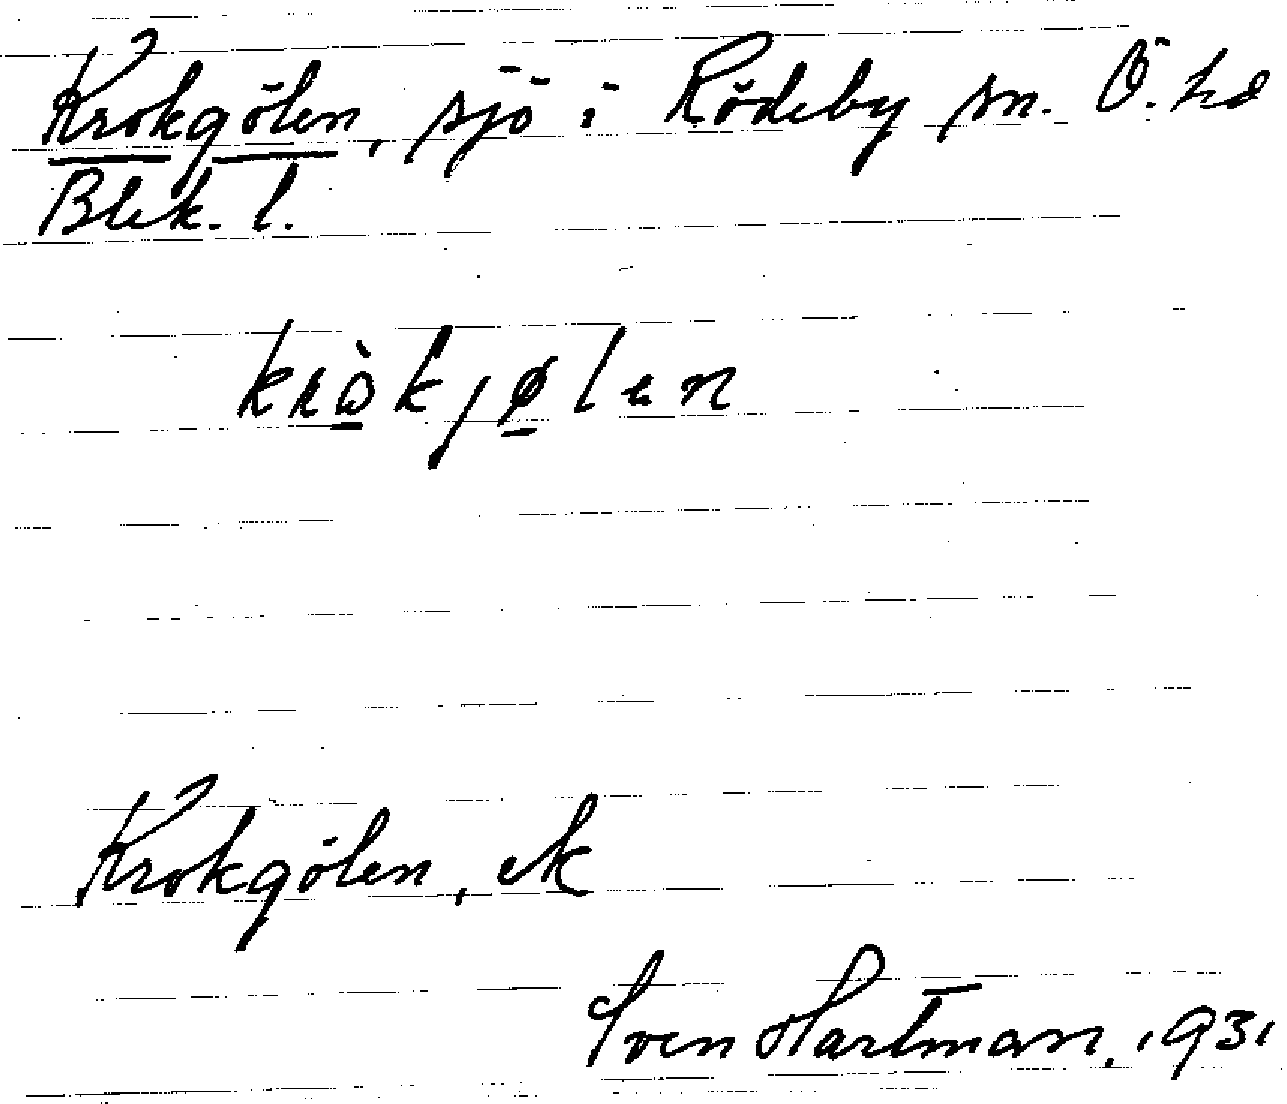 Krokgölen, sjö i Rödeby sn. Ö. hd
Blek. l.
kròkjølen
Krokgölen, ek
Sven Hartman. 1931